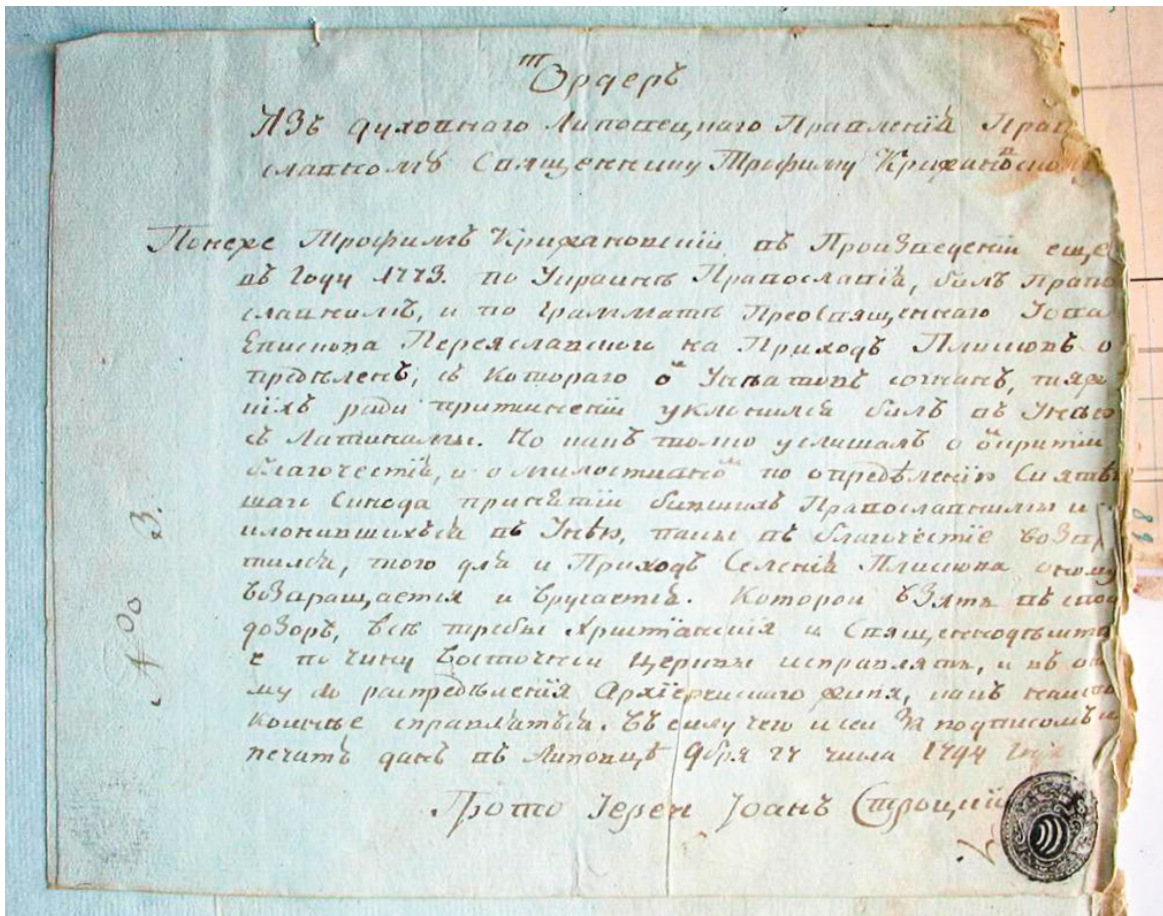 Ордеръ
Изъ духовнаго Липовецкаго Правленія Прав
славномъ Священнику Трофиму Крижановскому
Понеже Трофимъ Крижановскій въ Произведеній еще
въ Году 1773. по Украинѣ Православія, былъ Право
славнимъ, и по Граммати Преосвященнаго Іова
Епископа Переяславского на Приходъ Плисковъ о
предѣленъ, съ Котораго отъ Унѣатовъ согнанъ,
ради притисненій уклонился былъ въ Унѣю
съ Латинами. Но какъ толко услишалъ о открытіи
благочестія, и о милостивомъ по опредѣленію Святѣ
шаго Синода принятіи бывшихъ Православними и
клонившихься въ Унѣю, паки въ благочестіе возвра
тился, того для и Приходъ Селенія Плискова оному
возвращается и вручается. Которой взять въ свой
дозоръ, всѣ требы Християнскія и Священнодѣйстві
е по чину Восточнія Церкви исправлять, и въ он
му до распредѣленія Архіерейскаго жить, какъ
справлятся. Въ силу чего и сей За подписомъ и
печать данъ въ Липовцѣ 9бря 27 числа 1794 Года
Прото Іерей Іоанъ Строцкій
№ 23.
89